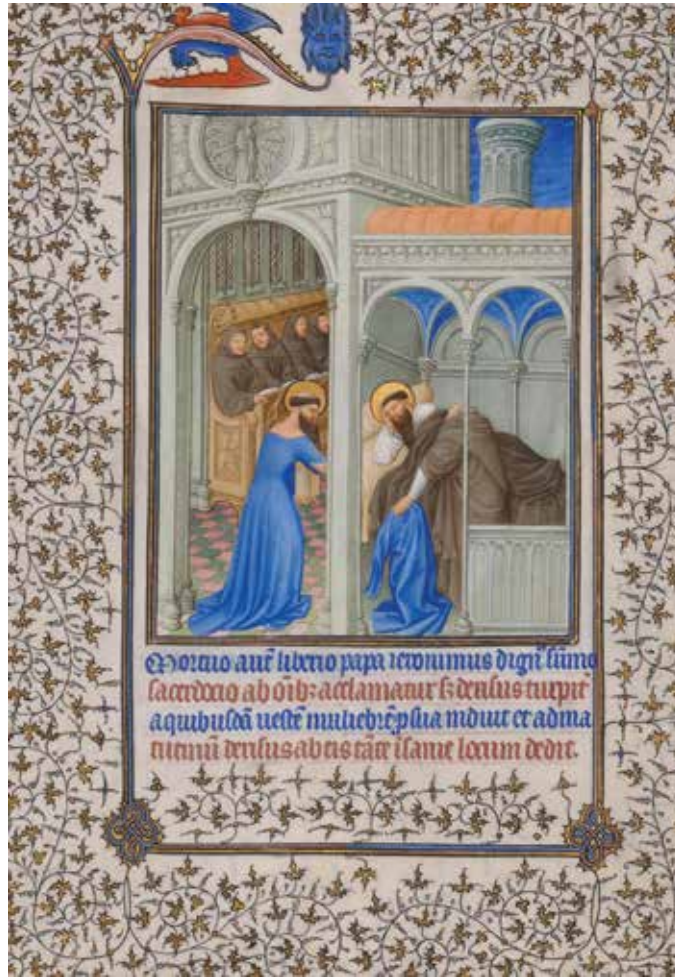 Mortuo aut̄ liberio papa ieronimus dign̄ sūmo
sacerdocio ab ōib; acclamatur s; derisus turpit̄
a quibusdā uestē muliebrē p̄ sua induit et ad ma
tutinū derisus ab eis tāte īsanie locum dedit.